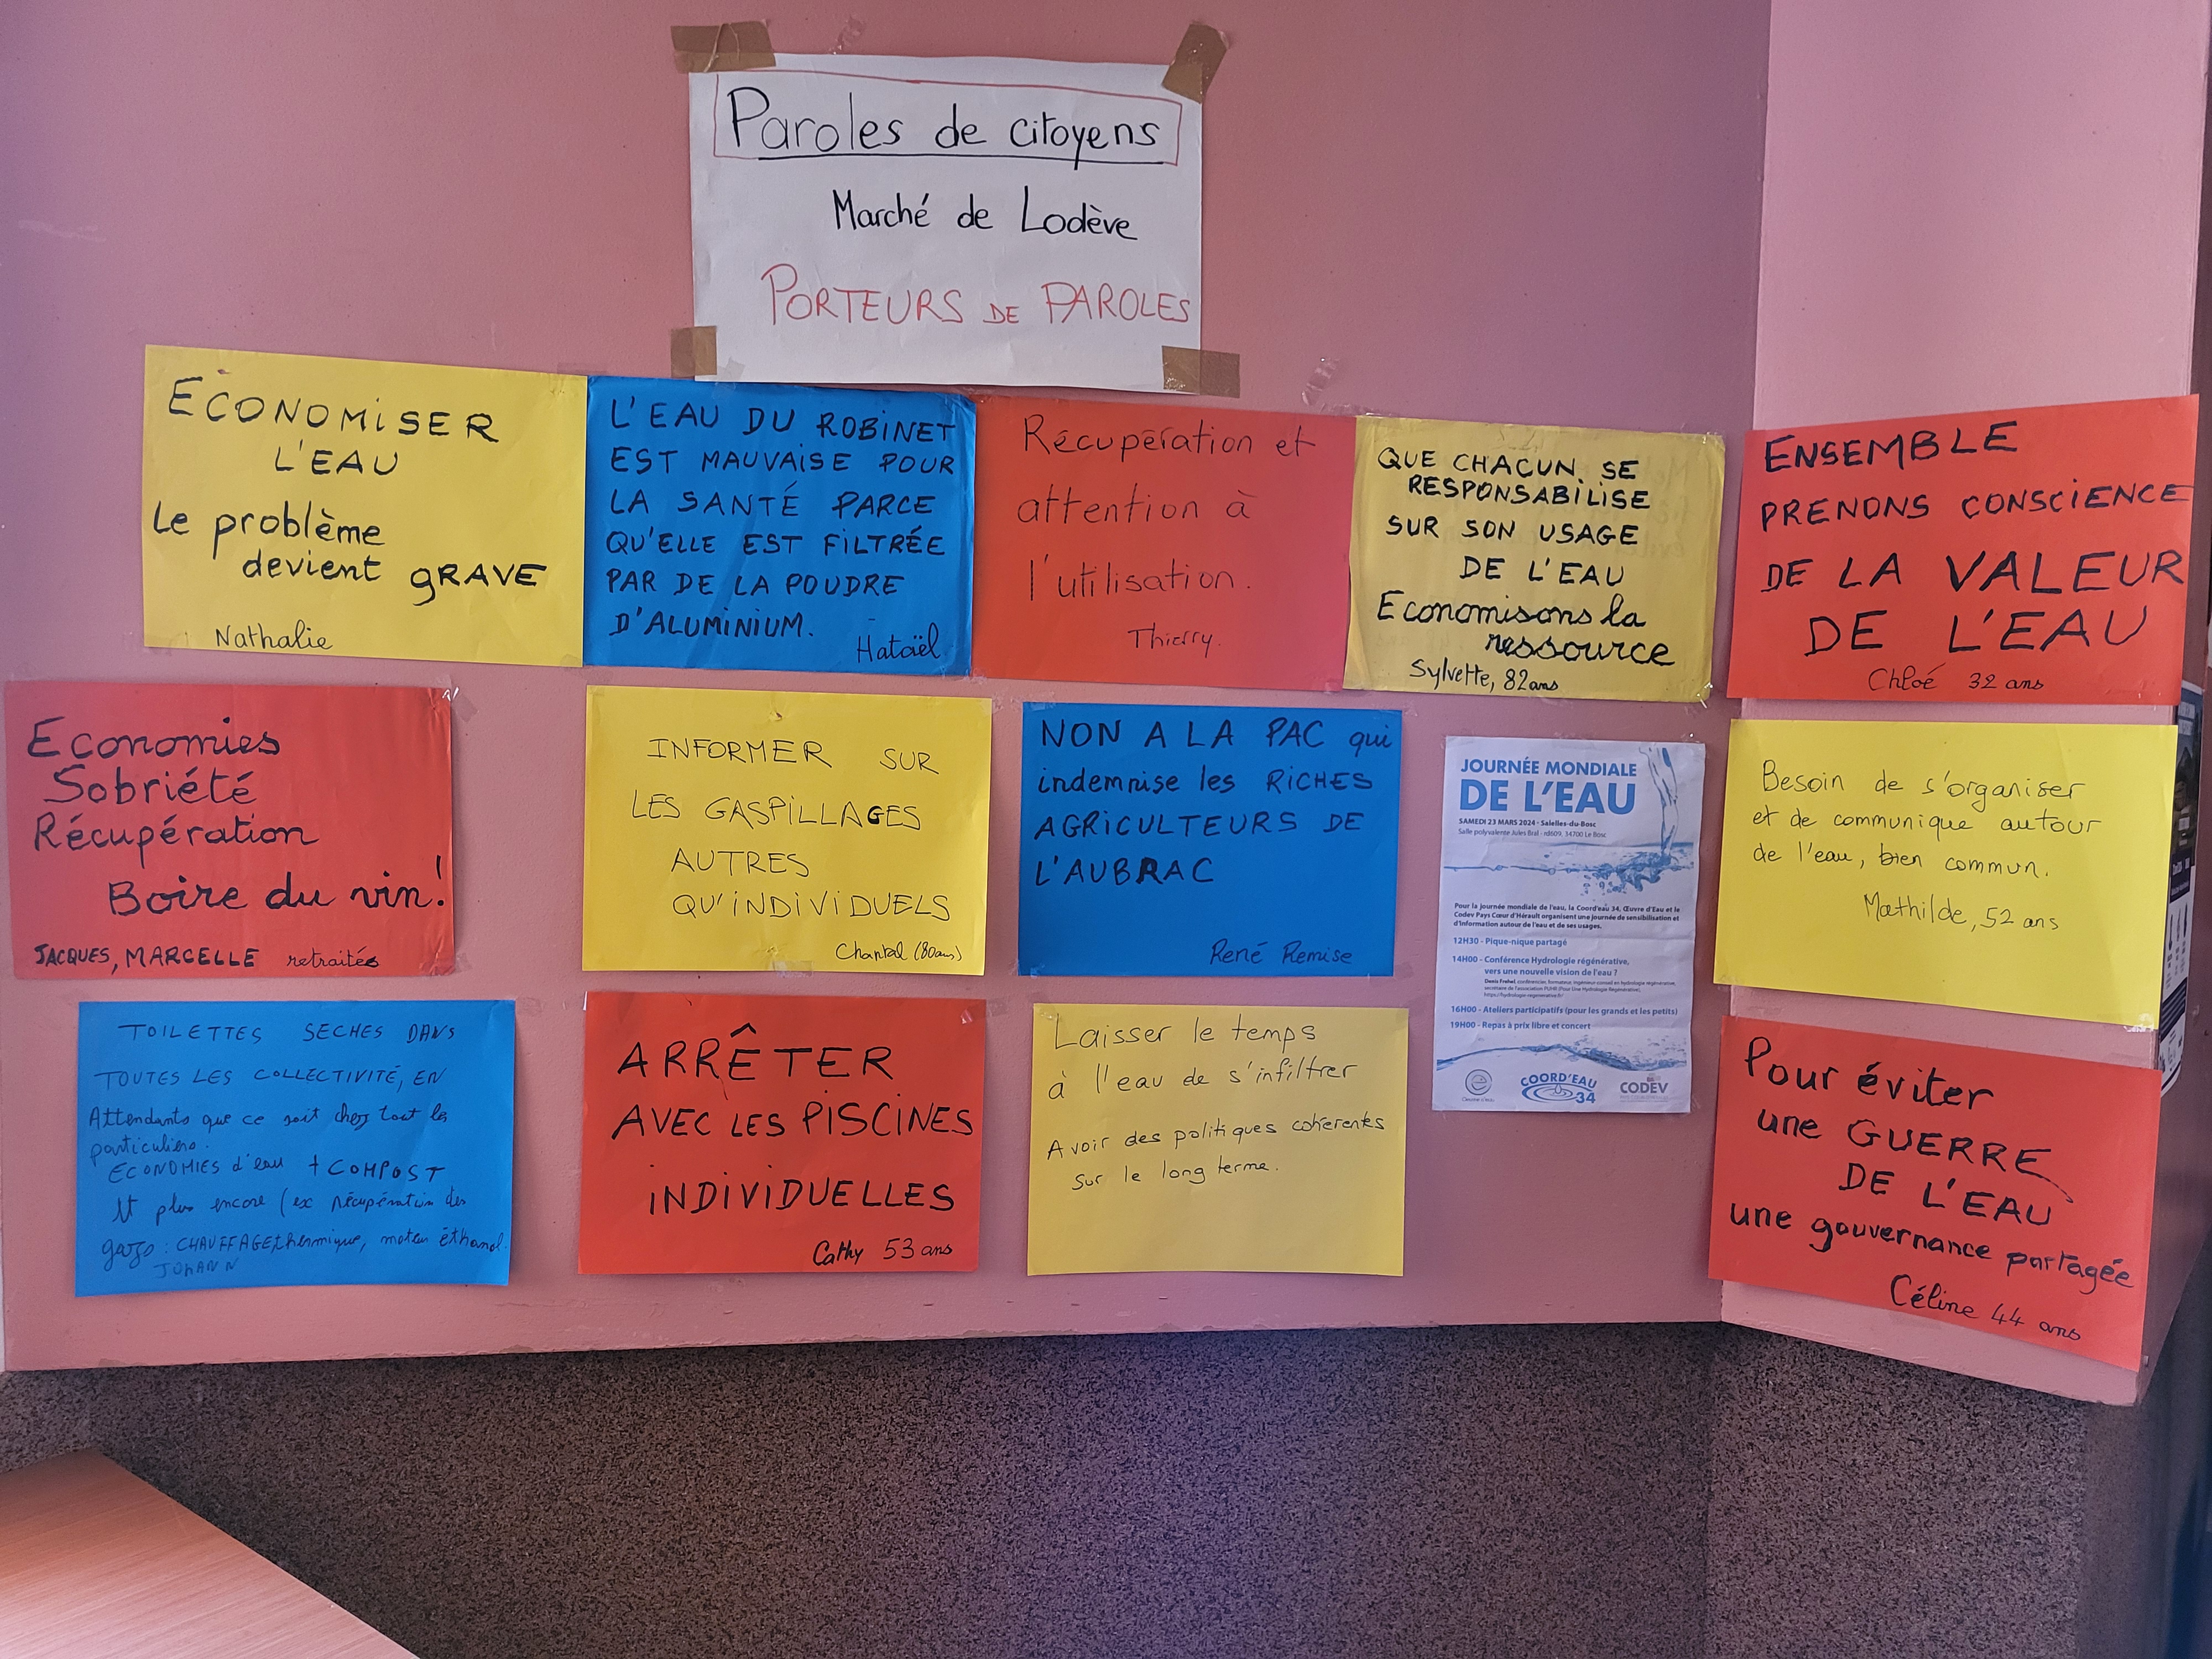 Paroles de citoyens
Marché de Lodève
PORTEURS DE PAROLES
ECONOMISER
L'EAU
Le problème
devient GRAVE
Nathalie
L'EAU DU ROBINET
EST MAUVAISE POUR
LA SANTÉ PARCE
QU'ELLE EST FILTRÉE
PAR DE LA POUDRE
D'ALUMINIUM.
Hataël
Récupération et
attention à
l'utilisation.
Thierry.
QUE CHACUN SE
RESPONSABILISE
SUR SON USAGE
DE L'EAU
Economisons la
ressource
Sylvette, 82 ans
ENSEMBLE
PRENONS CONSCIENCE
DE LA VALEUR
DE L'EAU
Chloé 32 ans
Economies
Sobriété
Récupération
Boire du vin!
JACQUES, MARCELLE retraités
INFORMER SUR
LES GASPILLAGES
AUTRES
QU'INDIVIDUELS
Chantal (80ans)
NON A LA PAC qui
indemnise les RICHES
AGRICULTEURS DE
L'AUBRAC
René Remise
JOURNÉE MONDIALE
DE L'EAU
SAMEDI 23 MARS 2024 - Salelles-du-Bosc
Salle polyvalente Jules Bral - rd609, 34700 Le Bosc
Pour la journée mondiale de l'eau, la Coord'eau 34, Œuvre d'Eau et le
Codev Pays Cœur d'Hérault organisent une journée de sensibilisation et
d'information autour de l'eau et de ses usages.
12H30 - Pique-nique partagé
14H00 - Conférence Hydrologie régénérative,
vers une nouvelle vision de l'eau ?
Denis Frehel, conférencier, formateur, ingénieur-conseil en hydrologie régénérative,
secrétaire de l'association PUHR (Pour Une Hydrologie Régénérative),
https://hydrologie-regenerative.fr/
16H00 - Ateliers participatifs (pour les grands et les petits)
19H00 - Repas à prix libre et concert
COORD'EAU
34
CODEV
Besoin de s'organiser
et de communique autour
de l'eau, bien commun.
Mathilde, 52 ans
TOILETTES SECHES DANS
TOUTES LES COLLECTIVITÉ, EN
Attendants que ce soit chez tout les
particuliers.
ECONOMIES d'eau + COMPOST
Et plus encore (ex récupération des
gazs : CHAUFFAGE, thermique, moteur éthanol.
JOHANN
ARRÊTER
AVEC LES PISCINES
INDIVIDUELLES
Cathy 53 ans
Laisser le temps
à l'eau de s'infiltrer
Avoir des politiques cohérentes
sur le long terme.
Pour éviter
une GUERRE
DE L'EAU
une gouvernance partagée
Céline 44 ans